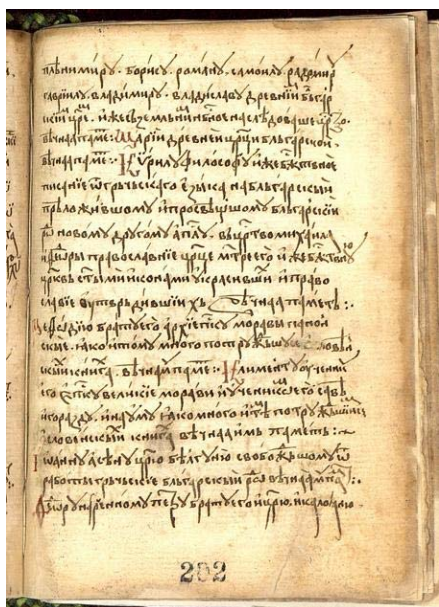 плѣнимирꙋ · борисꙋ · романꙋ · самоилꙋ · радѡмирꙋ
гаврїилꙋ · владимирꙋ · владиславꙋ древнїим бльгар
скїимь цре · иже съ земльним и нб҃сное наслѣдовавше цр҃о ·
вѣчнаа паме : Марїи древнеи цр҃ци бльгарской ·
вѣчнаа паме : Кѵрилꙋ философꙋ иже бж҃ствное
писанїе ѿ гръчьскаго езыка на бльгарскый
прѣложившомꙋ и просвѣщьшомꙋ бльгарскїи
рѡ новомꙋ дрꙋгомꙋ ап҃лꙋ · въ црство михаила
и ѳеѡры православнїе црце мтрее го и же бж҃ствнꙋю
црквь ст҃ыми иконами ꙋкрасившїи и право
славїе ꙋтврьдившїихь вѣчнаа паметь :·
Меѳѡдїю братꙋ его архїепкꙋ моравы панон
скые · ꙗко и томꙋ много потрꙋжьшꙋсе ѡ словѣн
скыи книга · вѣчнаа паме : Климентꙋ ꙋченикꙋ
его епкꙋ великїе морави и ꙋченикѡ его савѣ
и горазꙋ · и наꙋмꙋ ꙗко много и тѣ потрꙋжьшимсе
словенскыи книга вѣчнаа имь паметь :~
Іѡаннꙋ асѣнꙋ цр҃ю бѣлгꙋню свобожьшомꙋ ѿ
работы гръчьскїе бльгарскый рѡ вѣчнаа мꙋ па :·
Ѳеѡрꙋ нареченномꙋ петрꙋ братꙋ его и цр҃ю · и калоꙗню ·
202